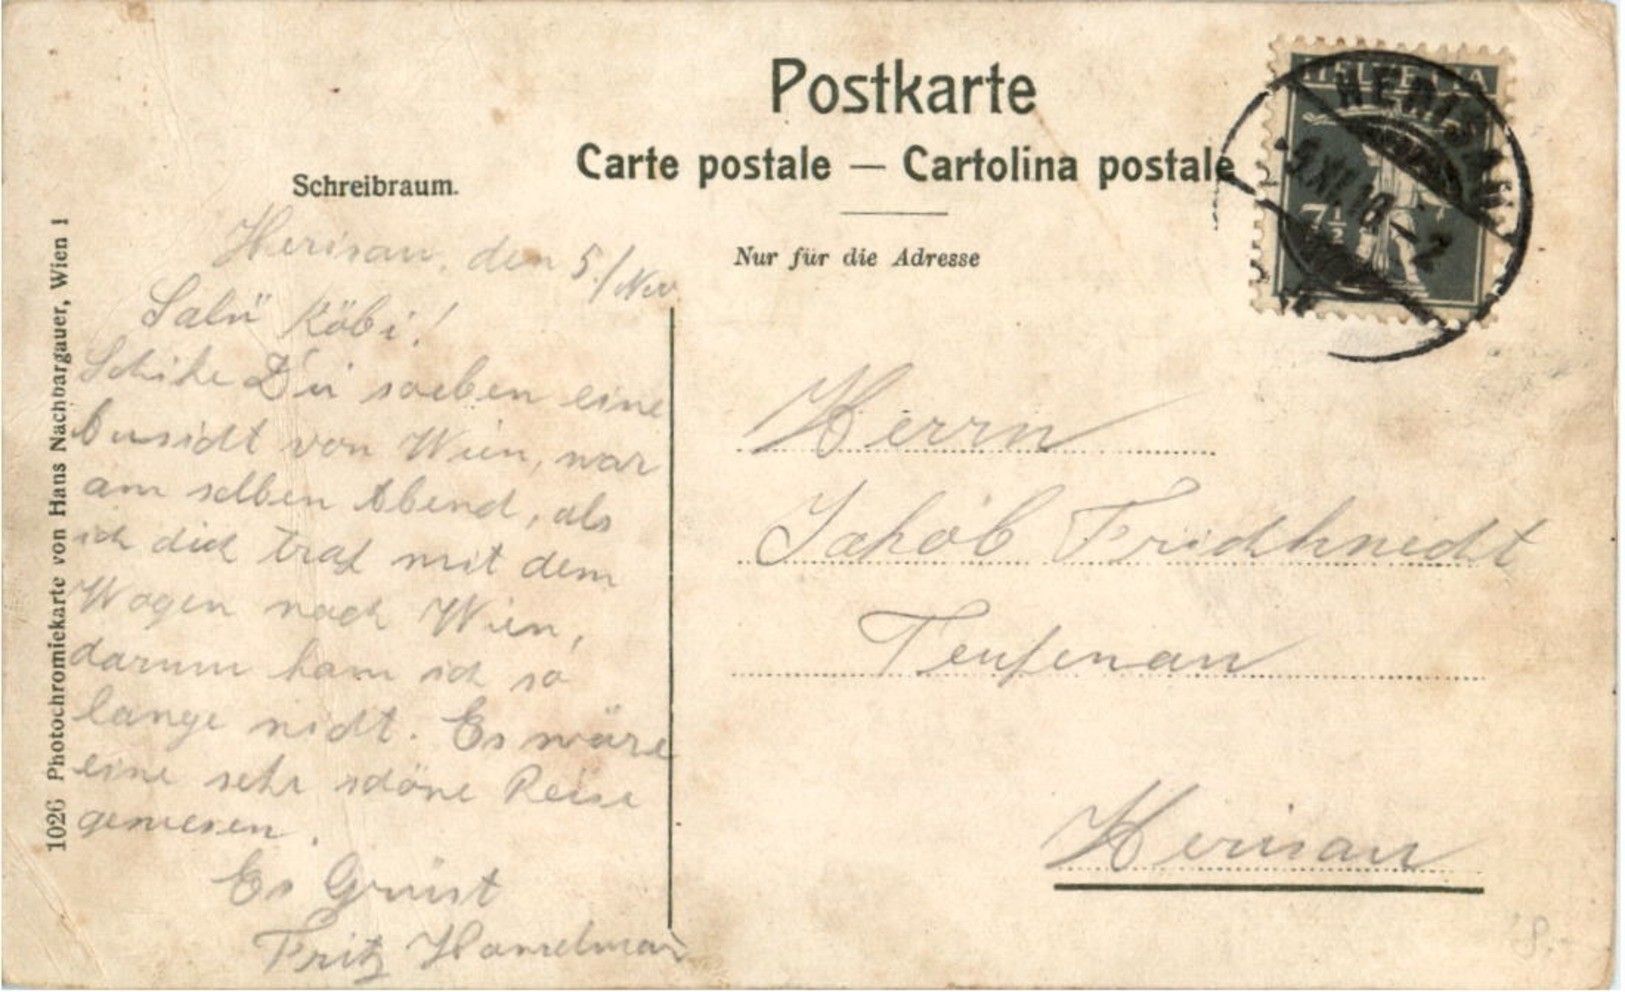 Postkarte
Carte postale — Cartolina postale
Nur für die Adresse
Schreibraum.
Herisau, den 5./Nov.
Salü Köbi!
Schike Dir soeben eine
von Wien, war
am selben Abend, als
ich dich traf mit dem
Wagen nach Wien,
darum kam ich so
lange nicht. Es wäre
eine sehr schöne Reise
gewesen.
Es Grüsst
Fritz
HELVETIA
7½
HERISAU
XI.18 - 2
Herrn
Jakob
Teufenau
Herisau
1026 Photochromiekarte von Hans Nachbargauer, Wien I